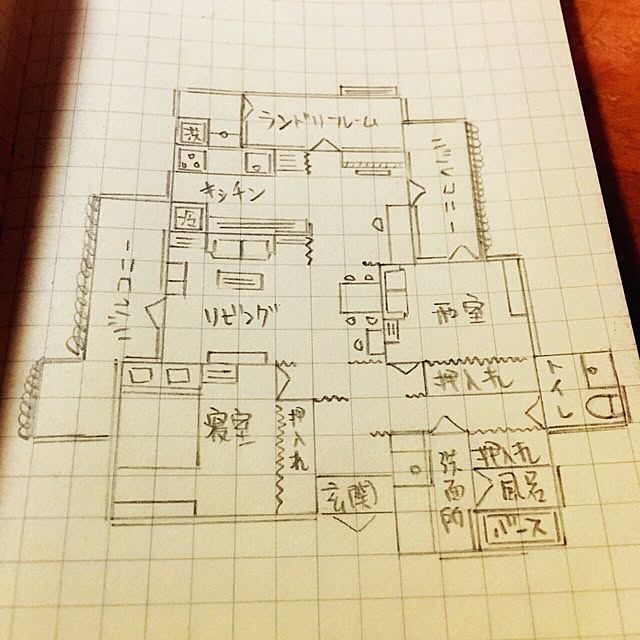 ランドリールーム
洗
キッチン
バルコニー
冷
バルコニー
リビング
和室
押入れ
トイレ
寝室
押入れ
洗面所
押入れ
玄関
風呂
バース